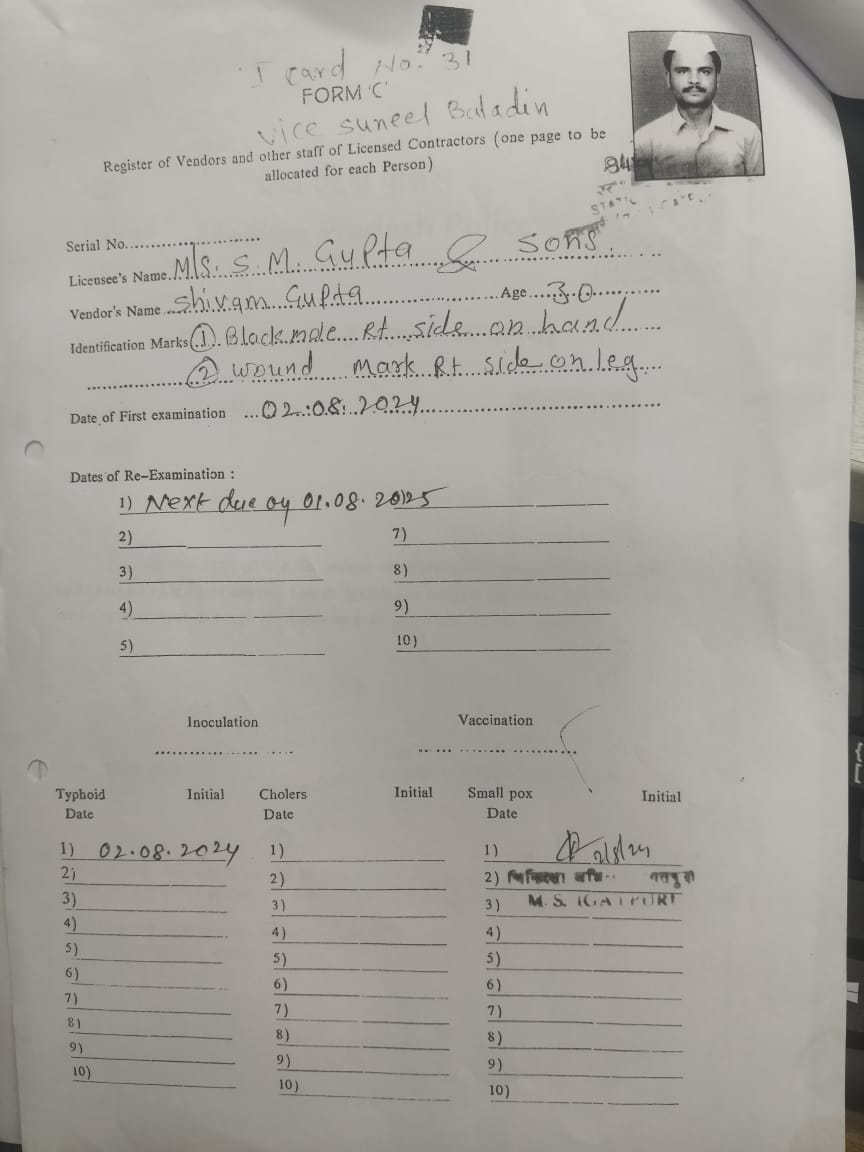 I card No. 31
FORM 'C'
vice Suneel Baladin
Register of Vendors and other staff of Licensed Contractors (one page to be
allocated for each Person)
Serial No.
Licensee's Name M/s. S. M. Gupta & sons.
Vendor's Name Shivam Gupta Age 30
Identification Marks ① Black mole Rt side on hand
② wound mark Rt side on leg
Date of First examination 02.08.2024
Dates of Re–Examination :
1) Next due oy 01.08.2025
2) 7)
3) 8)
4) 9)
5) 10)
Inoculation Vaccination
Typhoid Initial Cholers Initial Small pox Initial
Date Date Date
1) 02.08.2024 1) 1) 2/8/24
2) 2) 2) चिकित्सा
3) 3) 3) M. S. IGATPURI
4) 4) 4)
5) 5) 5)
6) 6) 6)
7) 7) 7)
8) 8) 8)
9) 9) 9)
10) 10) 10)